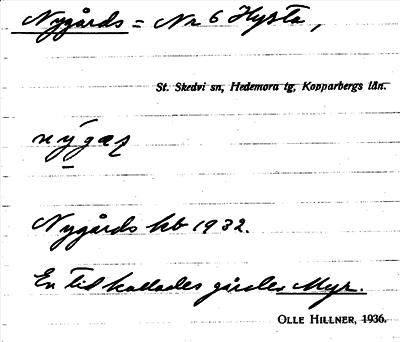 Nygårds = Nr 6 Hysta,
St. Skedvi sn, Hedemora tg, Kopparbergs län.
Nygårds kb 1932.
En tid kallades gården Myr.
OLLE HILLNER, 1936.